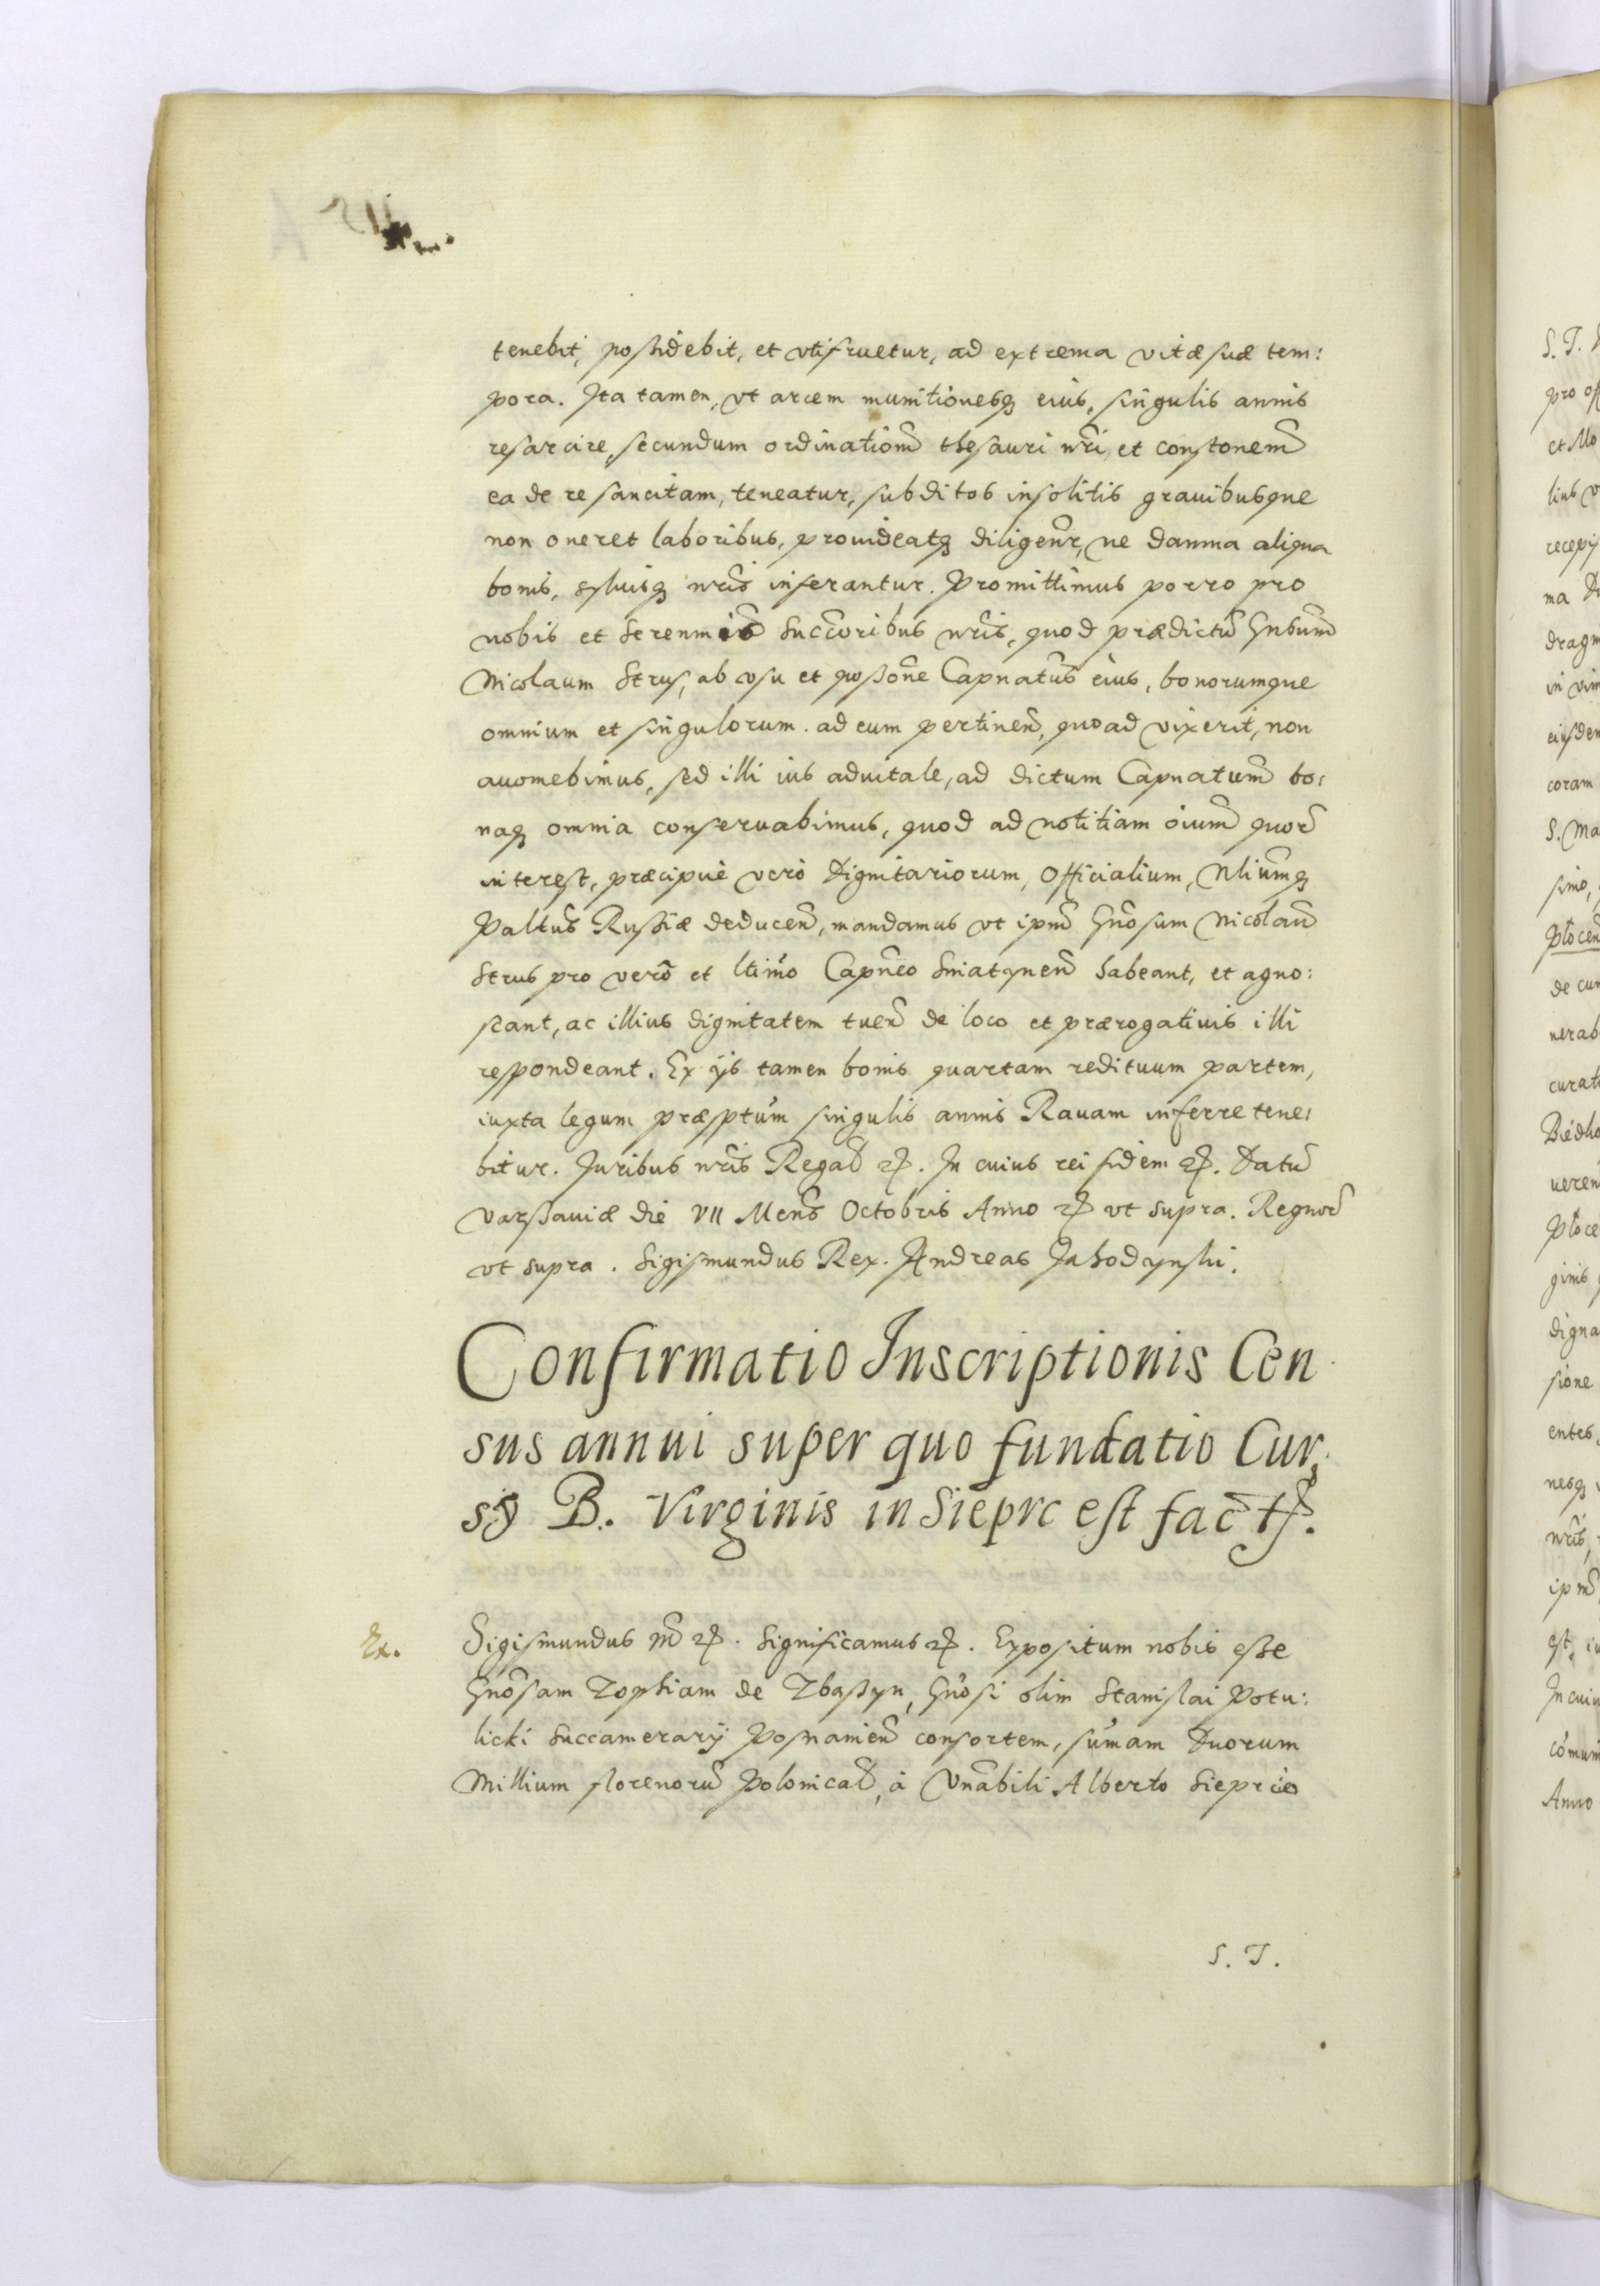 tenebit, possidebit, et vtifruetur, ad extrema vitæ suæ tem:
pora. Ita tamen, vt arcem munitionesq; eius, singulis annis
resarcire, secundum ordinationē thesauri nr̄i, et constonem̄
ea de re sancitam, teneatur, subditos insolitis grauibusque
non oneret laboribus, prouideatq; diligenr̄, ne damna aliqua
bonis, syluisq; nr̄is inferantur. Promittimus porro pro
nobis et Serenmis Succoribus nr̄is, quod prædictū Gnsum̄
Nicolaum Strus, ab vsu et possōne Capnatus̄ eius, bonorumque
omnium et singulorum ad eum pertinen̄, quoad vixerit, non
auomebimus, sed illi ius aduitale, ad dictum Capnatum̄ bo:
naq; omnia conseruabimus, quod ad notitiam oium̄ quor̄
interest, præcipuè verò Dignitariorum, Officialium, Nlium̄q;
Paltus̄ Russiæ deducen̄, mandamus vt ipm̄ Gnōsum Nicolaū
Strus pro verō et ltimo Capn̄eo Sniatynen̄ habeant, et agno:
scant, ac illius dignitatem tuen̄ de loco et prærogatiuis illi
respondeant. Ex ijs tamen bonis quartam redituum partem,
iuxta legum præsptum singulis annis Rauam inferre tene:
bitur. Iuribus nr̄is Regal̄ ꝛc. In cuius rei fidem ꝛc. Datū
Varssauiæ die VII Mens̄ Octobris Anno ꝛc vt supra. Regnor̄
vt supra. Sigismundus Rex. Andreas Jahodynski.
Confirmatio Inscriptionis Cen
sus annui super quo fundatio Cur,
sq B. Virginis in Sieprc est fac̄t.
Ex.
Sigismundus m̄ ꝛc. Significamus ꝛc. Expositum nobis esse
Gnōsam Zophiam de Zbąssyn, Gnōsi olim Stanislai Potu:
licki Succamerarij Posnanien̄ consortem, sūmam Duorum
Millium florenorū Polonical̄, à Vnābili Alberto Sieprcio
S. T.